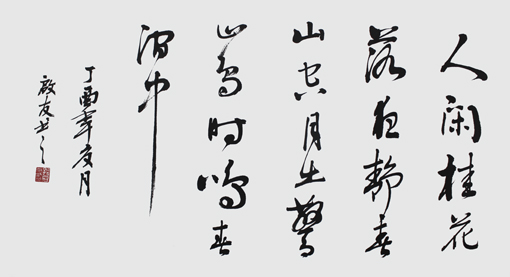 人闲桂花
落夜静春
山空月出驚
山鸟时鸣春
涧中
丁酉年夏月
友书